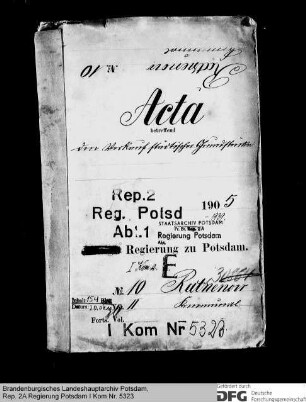 Rathenow
№ 10
Acta
betreffend
den Verkauf städtischer Grundstücke
Rep.2
Reg. Potsd
Abt.1
1905
STAATSARCHIV POTSDAM
Pr. Br. Rep. 2A
Regierung Potsdam
Regierung zu Potsdam.
I Kom.
E
№ 10 Rathenow
11
Forts. Vol.
I Kom NR 5323
Brandenburgisches Landeshauptarchiv Potsdam,
Rep. 2A Regierung Potsdam I Kom Nr. 5323
Gefördert durch
DFG Deutsche
Forschungsgemeinschaft